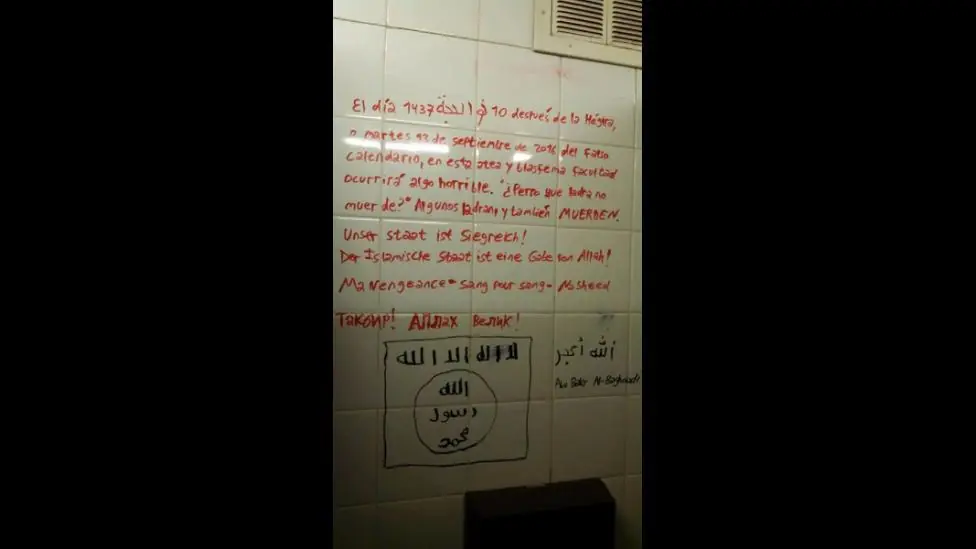 El día 1437 ذو الحجة 10 después de la Hégira,
o martes 13 de septiembre de 2016 del falso
calendario, en esta atea y blasfema facultad
ocurrirá algo horrible. "¿Perro que ladra no
muerde?" Algunos ladran, y también MUERDEN.
Unser staat ist Siegreich!
Der Islamische Staat ist eine Gabe von Allah!
Ma vengeance - sang pour sang - Nasheed
Такбир! Аллах Велик!
لا اله الا الله
الله
رسول
محمد
الله أكبر
Abu Bakr Al-Baghdadi